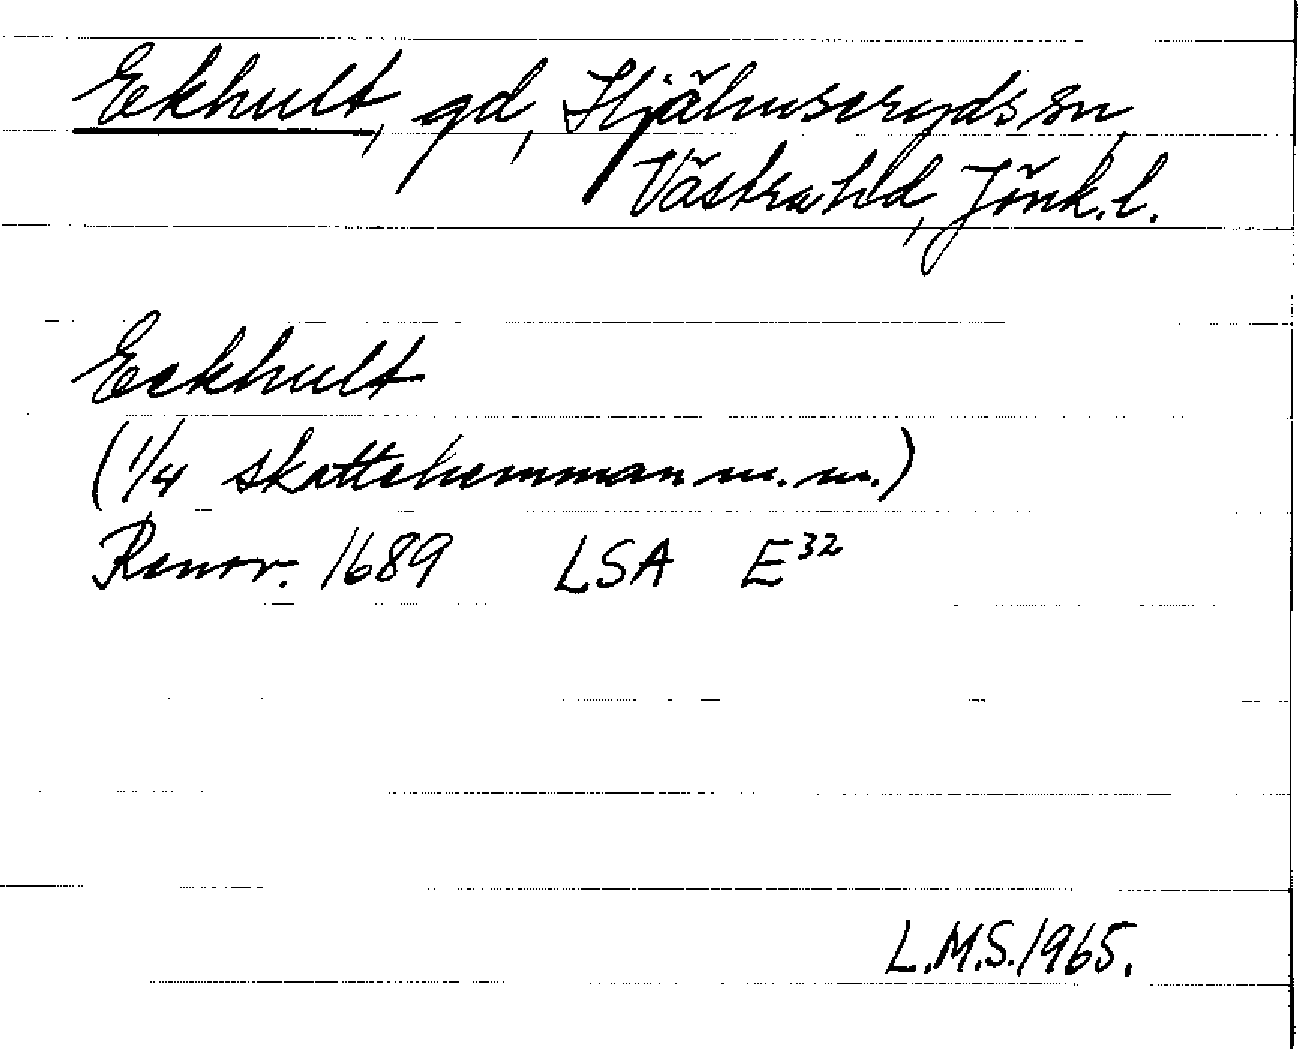 Ekhult, gd, Hjälmseryds sn,
Västra hd, Jönk. l.
Eekhult
(1/4 skattehemman m. m.)
Renov. 1689 LSA E³²
L.M.S. 1965.